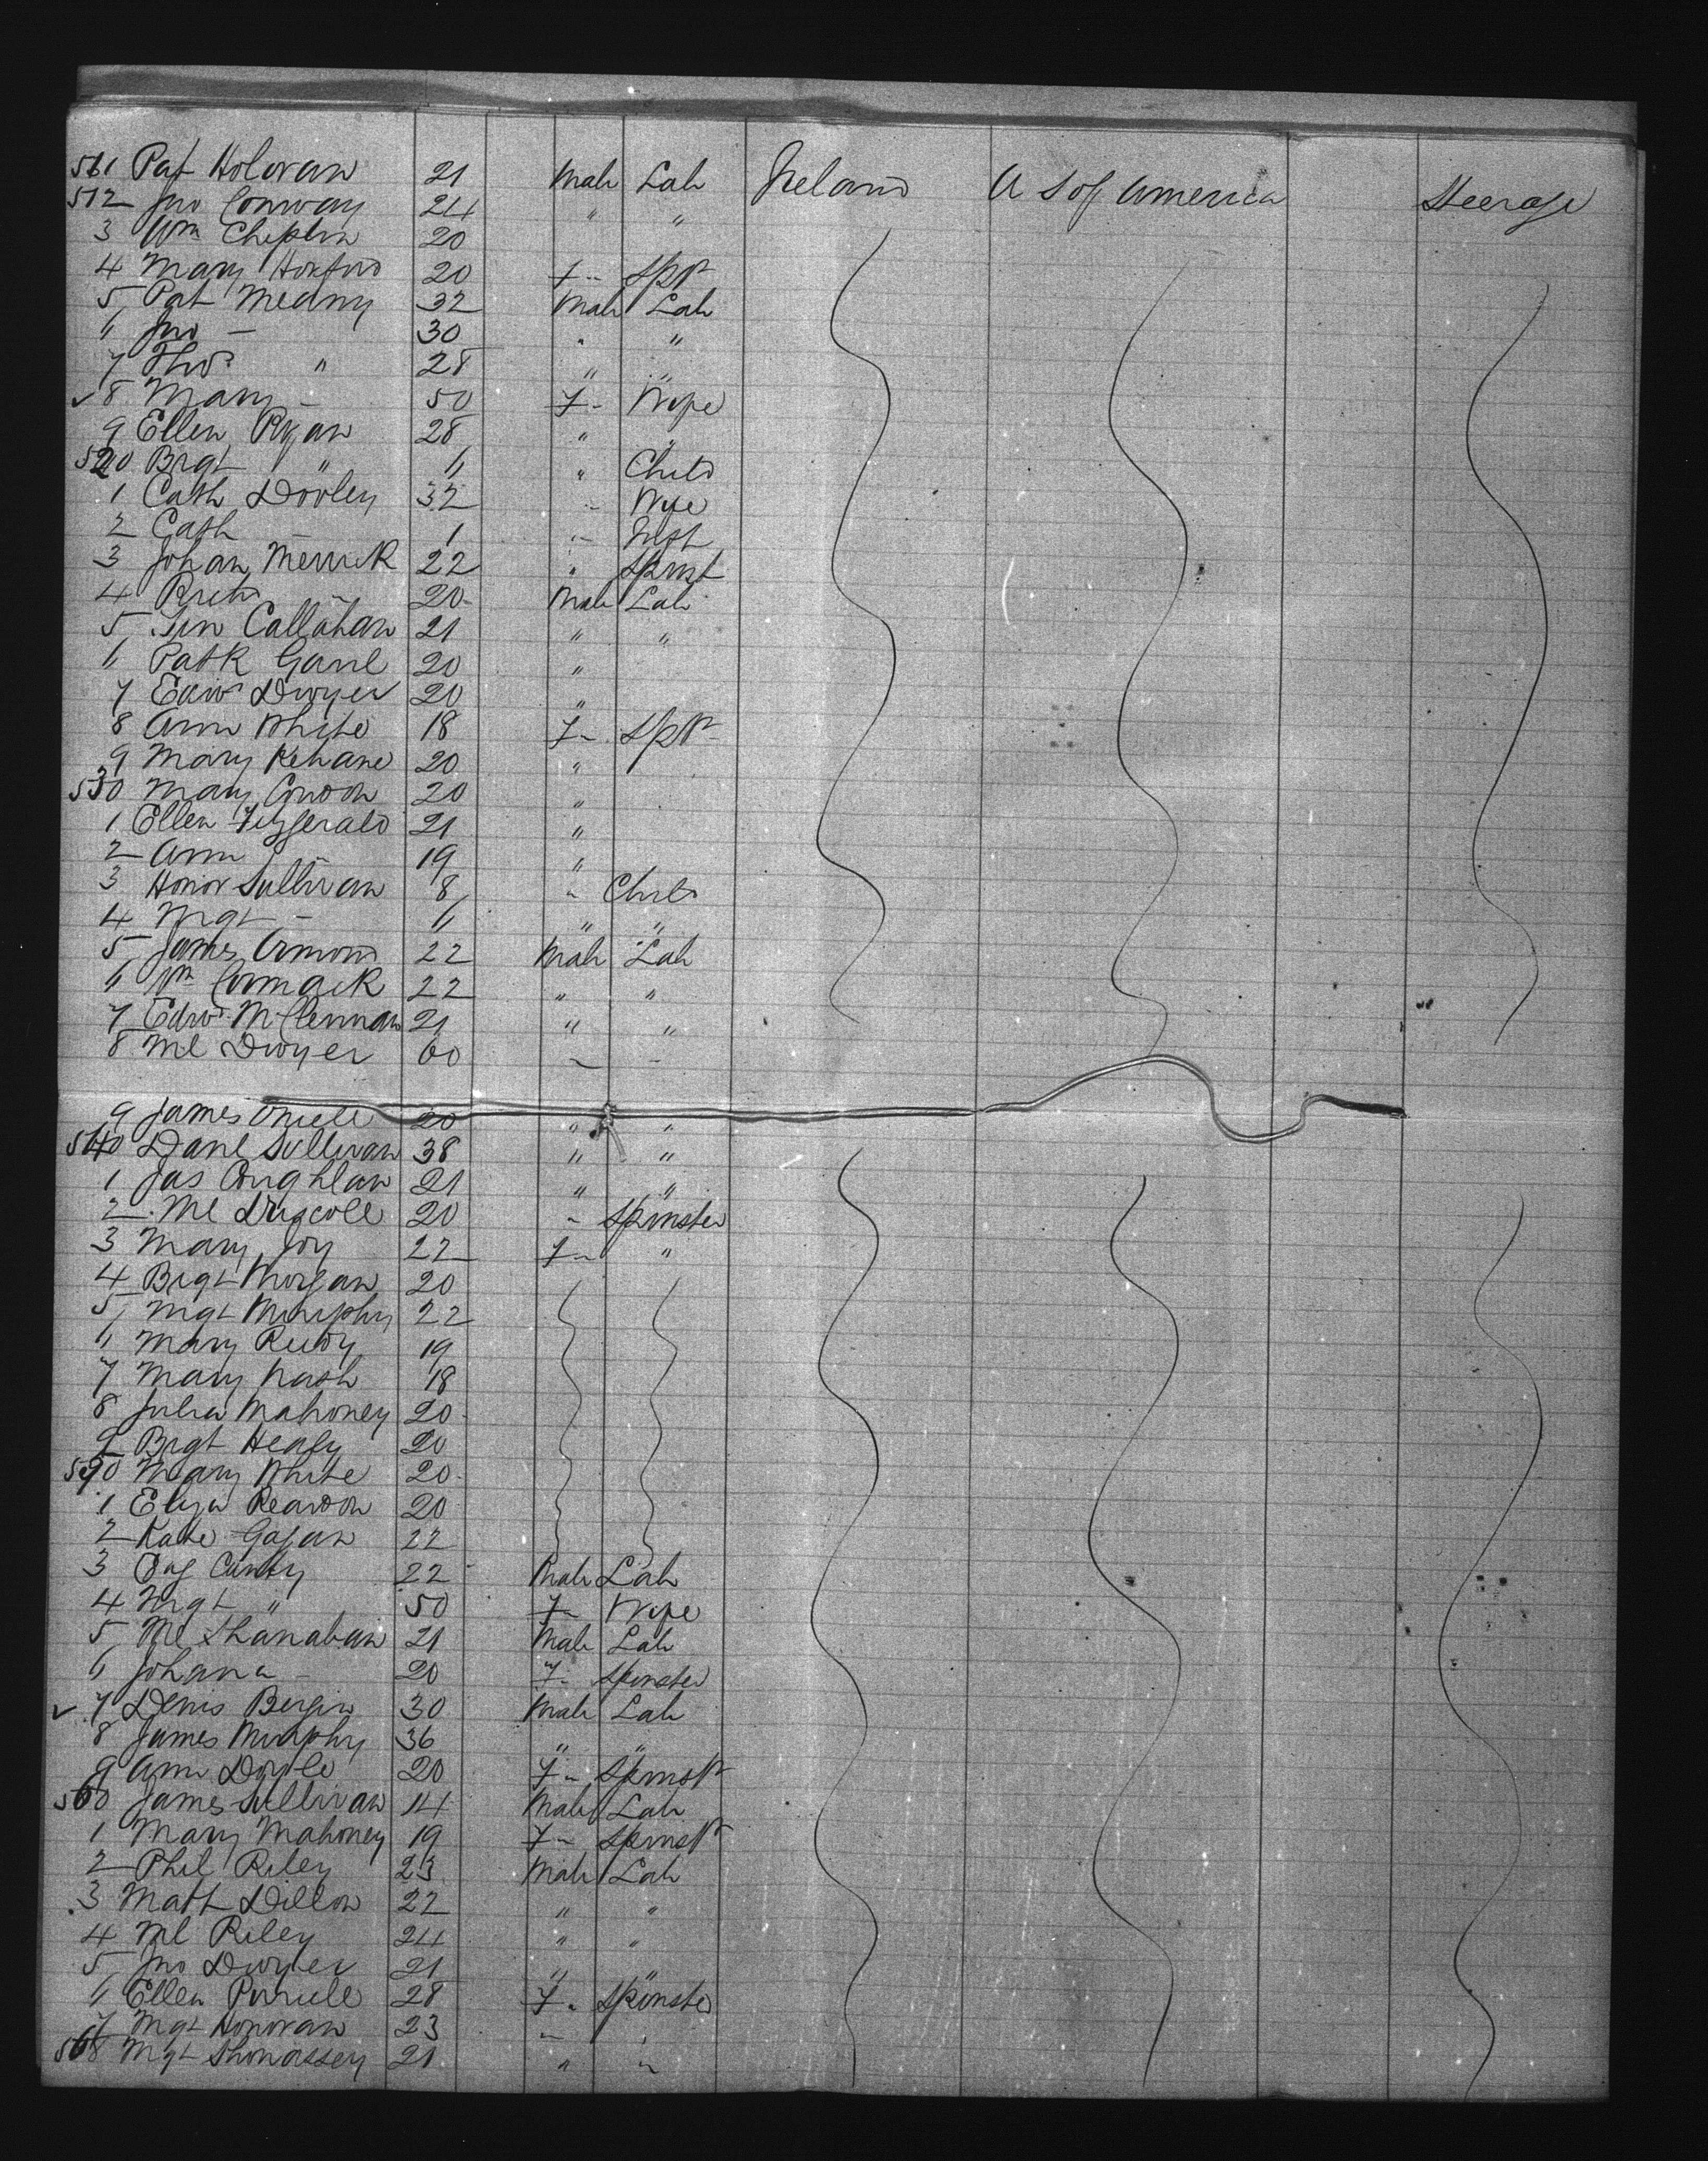 511 Pat Holoran 21 Male Lab Ireland U S of America Steerage
512 Jno Conway 24 " "
3 Wm Cheplin 20
4 Mary Hoxford 20 F " Spr
5 Pat Meany 32 Male Lab
6 Jno - 30 " "
7 Thos " 28 " "
8 Mary - 50 F - Wife
9 Ellen Ryan 28 " "
520 Brgt " 11 " Child
1 Cath Dooley 32 " Wife
2 Cath - 1 " Inft
3 Johan Merrick 22 " Spinst
4 Richd " 20 Male Lab
5 Callahan 21 " "
6 Patk 20 "
7 Edwd Dwyer 20 "
8 Ann White 18 F " Spr
9 Mary Kehane 20 "
530 Mary 20 "
1 Ellen Fitzgerald 21 "
2 Ann - 19 "
3 Honor Sullivan 8 " Child
4 Mgt - 6 " "
5 James Ormond 22 Male Lab
6 Wm Cormack 22 " "
7 Edwd 21 " "
8 Ml Dwyer 60 " -
9 James Oniell 20 " "
540 Danl Sullivan 38 " "
1 Jas Coughlan 21 " "
2 Ml Driscoll 20 " Spinster
3 Mary Joy 22 F " "
4 Brgt Morgan 20
5 Mgt Murphy 22
6 Mary 19
7 Mary Nash 18
8 Julia Mahoney 20
9 Brgt Heafy 20
550 Mary White 20
1 Eliza Reardon 20
2 Kate Gagan 22
3 22 Male Lab
4 Mgt " 50 F - Wife
5 Ml Shanahan 21 Male Lab
6 Johana - 20 F - Spinster
7 Denis Bergin 30 Male Lab
8 James Murphy 36 " "
9 Ann Doyle 20 F " Spinstr
560 James Sullivan 14 Male Lab
1 Mary Mahoney 19 F " Spinstr
2 Phil Riley 23 Male Lab
3 Math Dillon 22 " "
4 Ml Riley 24 " "
5 Jno Dwyer 21 " "
6 Ellen Purcell 28 F " Spinster
7 Mgt Honovan 23 " "
568 Mgt 21 " "